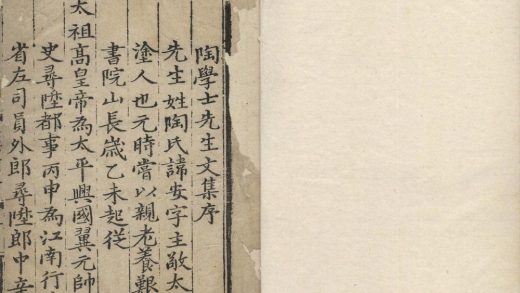 陶學士先生文集序
先生姓陶氏諱安字主敬太
塗人也元時嘗以親老養艱
書院山長歲乙未起從
太祖高皇帝為太平興國翼元帥
史尋陞都事丙申為江南行
省左司員外郎尋陞郎中辛